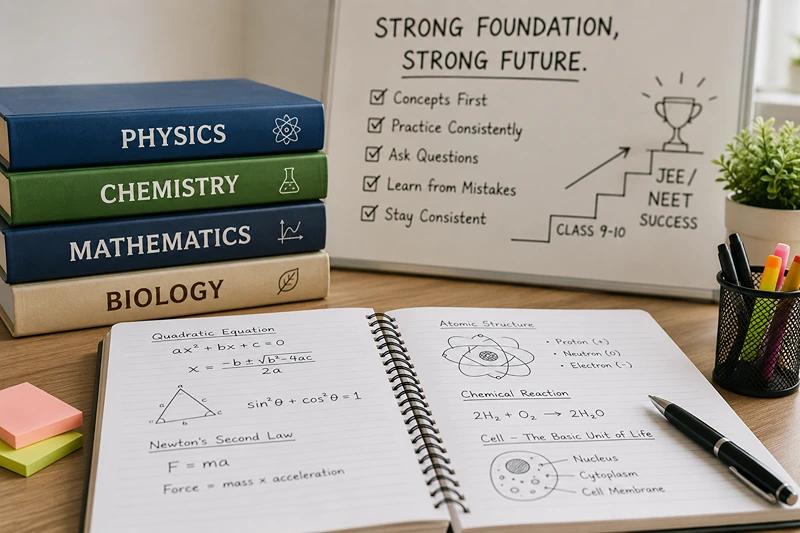 PHYSICS
CHEMISTRY
MATHEMATICS
BIOLOGY
STRONG FOUNDATION,
STRONG FUTURE.
Concepts First
Practice Consistently
Ask Questions
Learn from Mistakes
Stay Consistent
CLASS 9-10
JEE/
NEET
SUCCESS
Quadratic Equation
ax² + bx + c = 0
x = (-b ± √(b²-4ac))/2a
sin²θ + cos²θ = 1
Newton's Second Law
F = ma
Force = mass × acceleration
Atomic Structure
• Proton (+)
• Neutron (0)
• Electron (-)
Chemical Reaction
2H₂ + O₂ → 2H₂O
Cell – The Basic Unit of Life
Nucleus
Cytoplasm
Cell Membrane